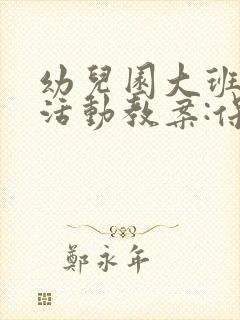 幼兒園大班
活動教案:保
鄭永年